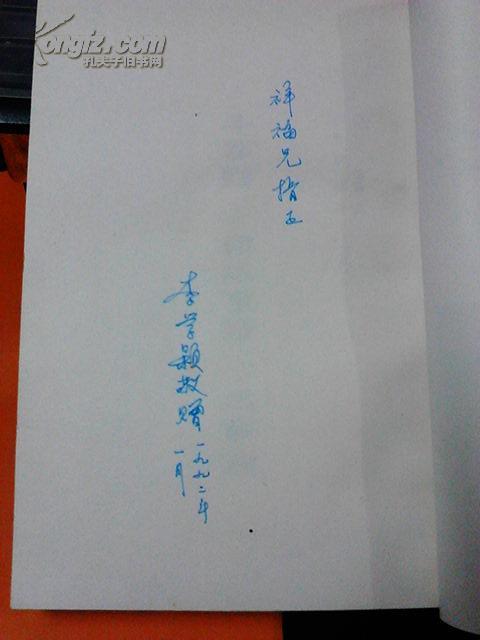 Kongfz.com
孔夫子旧书网
祥福兄指正
李学颖敬赠
一九九二年
一月